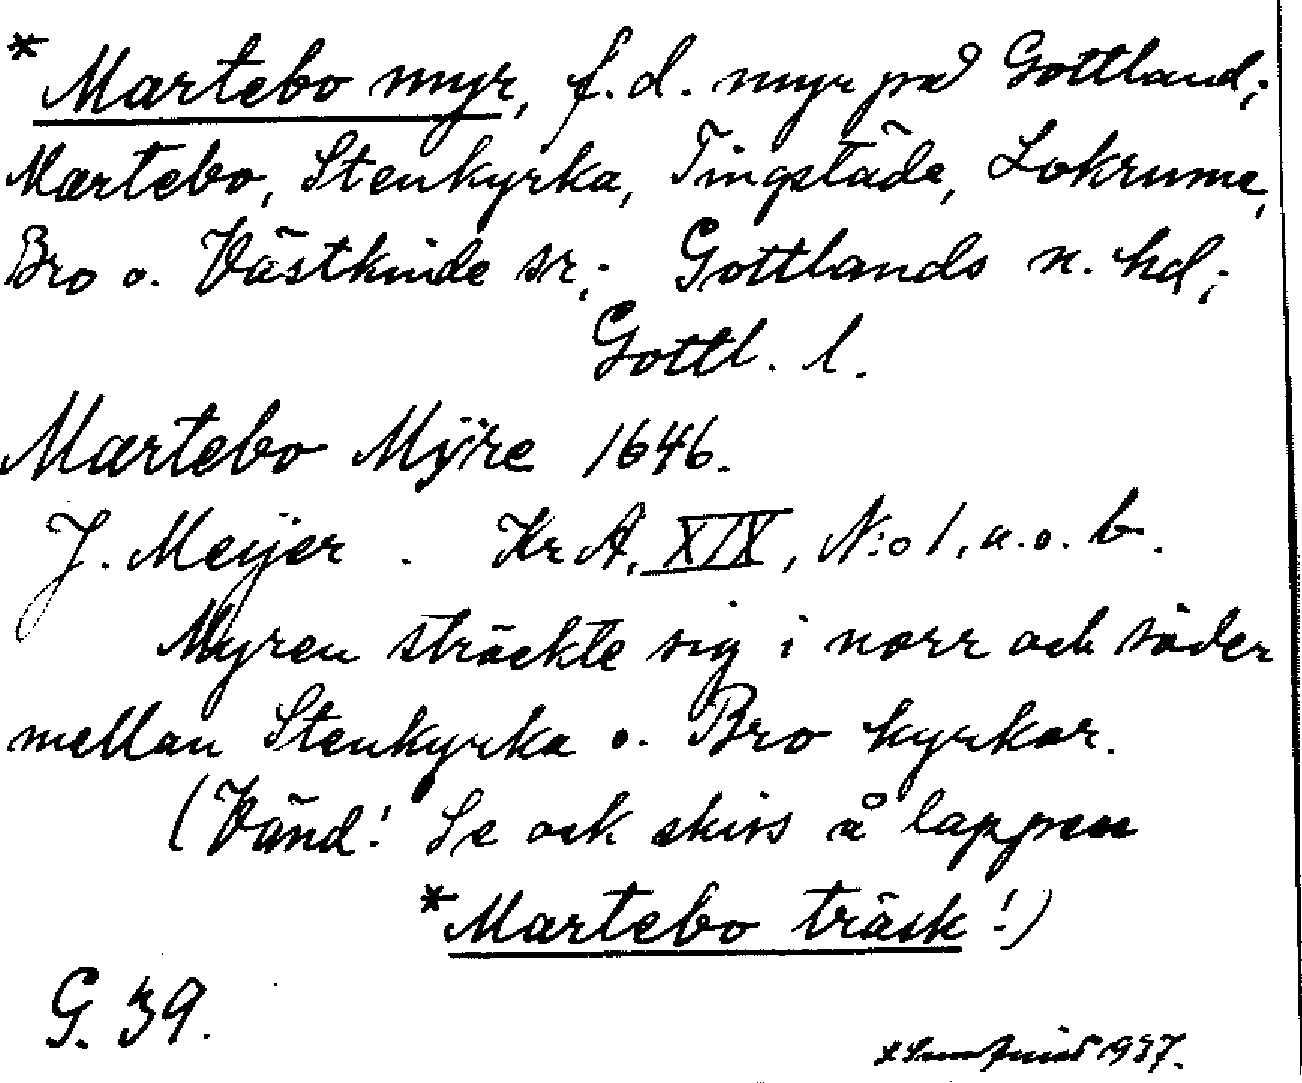 *Martebo myr, f.d. myr på Gottland;
Martebo, Stenkyrka, Tingstäde, Lokrume,
Bro o. Västkinde sr; Gottlands n. hd;
Gottl. l.
Martebo Mÿre 1646.
J. Meijer. KrA, XIX, N:o 1, a. o. b.
Myren sträckte sig i norr och söder
mellan Stenkyrka o. Bro kyrkor.
(Vänd! Se ock skiss å lappen
*Martebo träsk!)
G. 39.
1937.